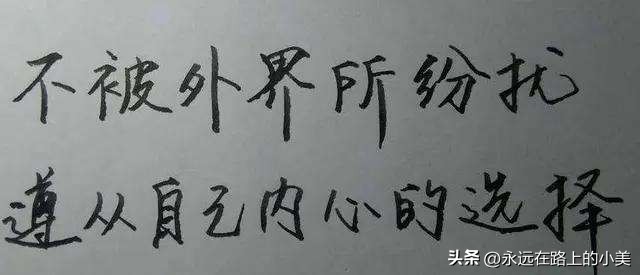 不被外界所纷扰
遵从自己内心的选择
头条 @永远在路上的小美